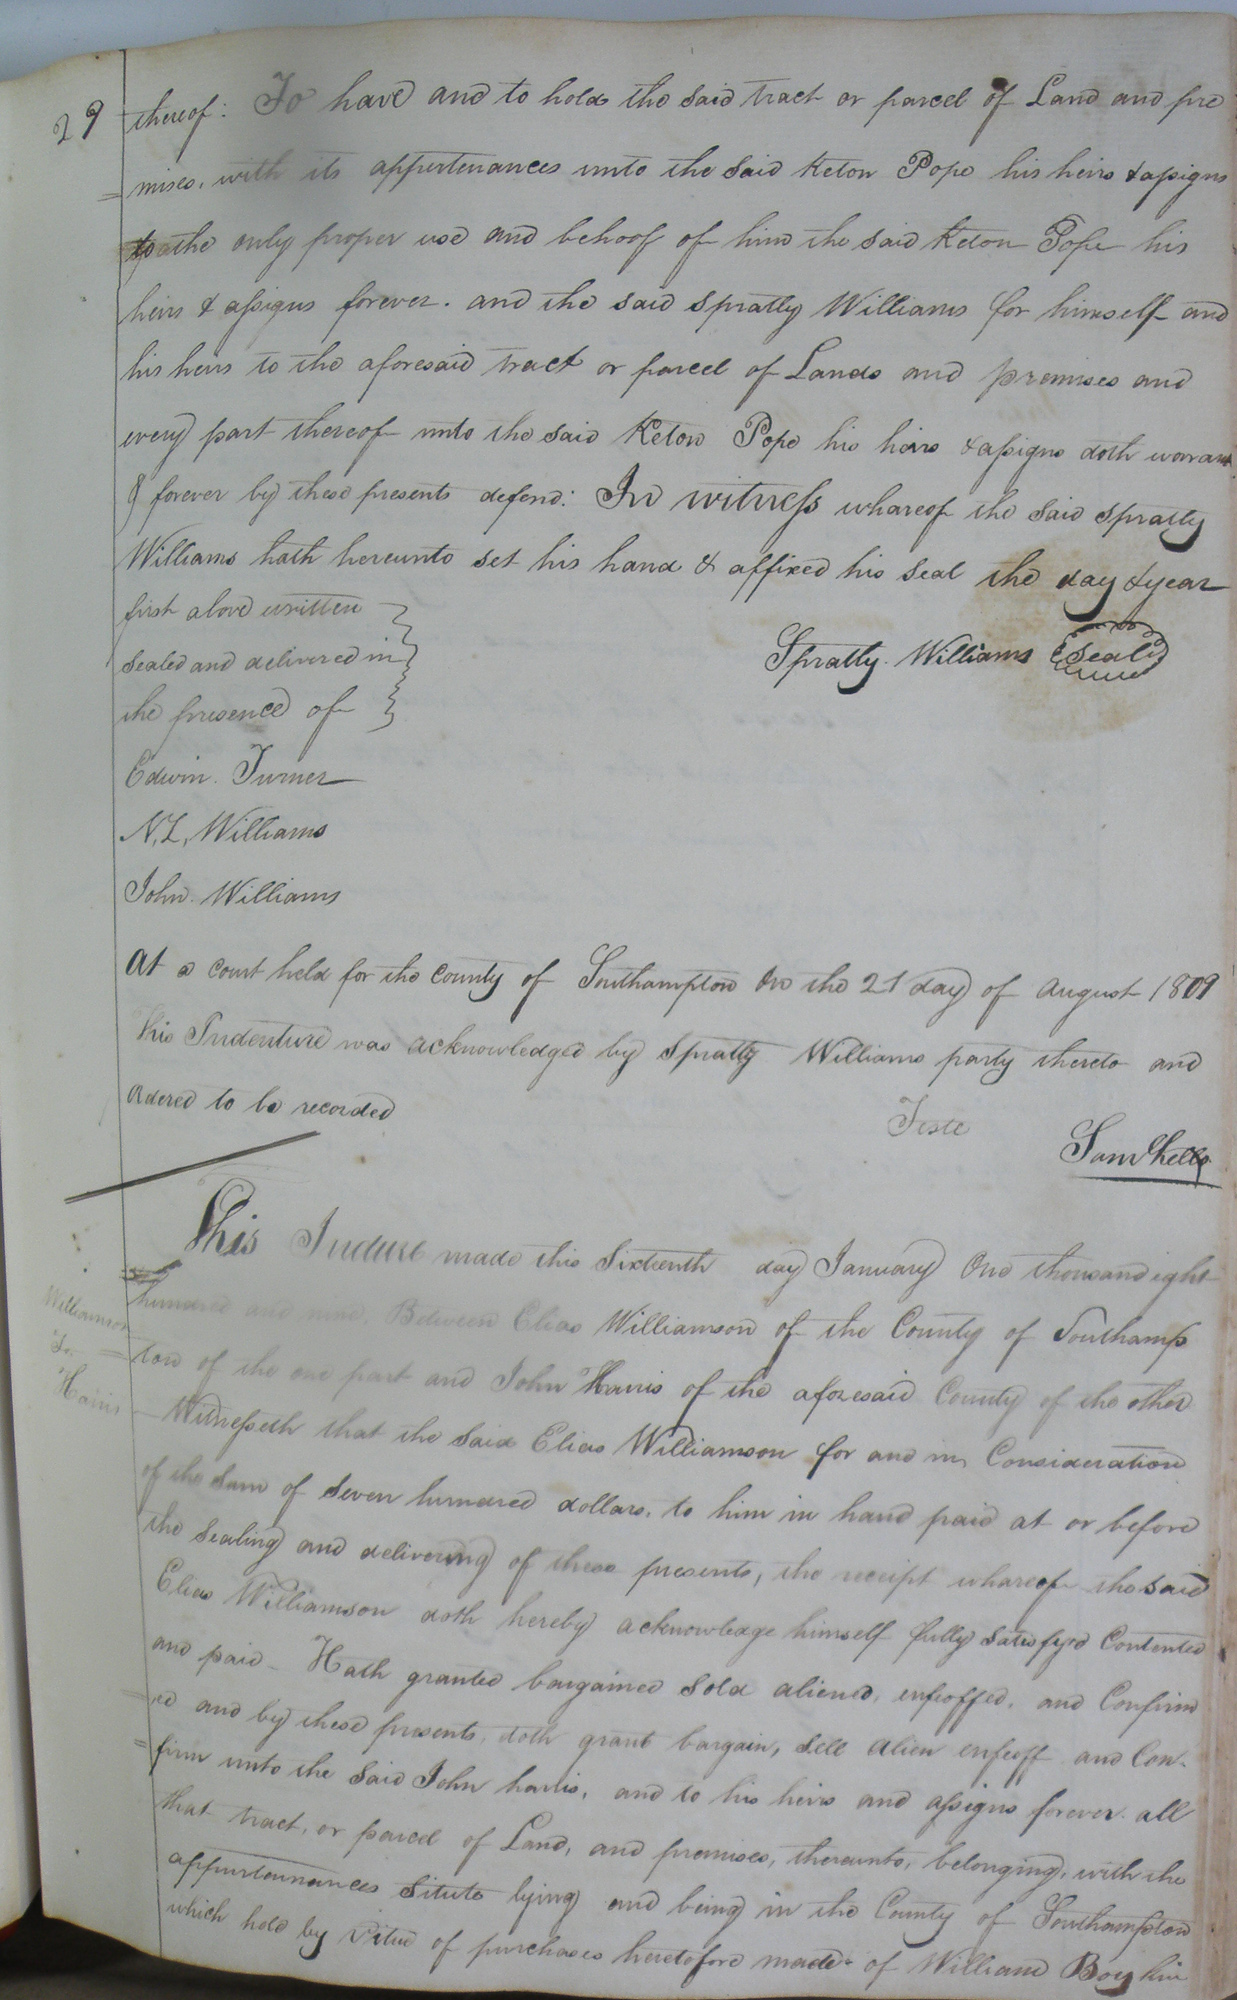 29
thereof: To have and to hold the said tract or parcel of Land and pre
= mises, with its appertenances unto the said Keton Pope his heirs & assigns
to the only proper use and behoof of him the said Keton Pope his
heirs & assigns forever. and the said Spratly Williams for himself and
his heirs to the aforesaid tract or parcel of Lands and premises and
every part thereof unto the said Keton Pope his heirs & assigns doth warrant
& forever by these presents defend: In witness whareof the said Spratly
Williams hath hereunto set his hand & affixed his seal the day & year
first above written
Sealed and delivered in
the presence of
Spratly. Williams Seal
Edwin. Turner
N. L, Williams
John. Williams
At a court held for the County of Southampton On the 21 day of August 1809
This Indenture was acknowledged by Spratly Williams party thereto and
Ordered to be recorded
Teste
Saml Kello
This Indure made this Sixteenth day January One thousand eight
hundred and nine, Between Elias Williamson of the County of Southamp
Williamson
To
Harris
= ton of the one part and John Harris of the aforesaid County of the other
— Witnesseth that the said Elias Williamson for and in Consideration
of the Sum of Seven hundred dollars, to him in hand paid at or before
the Sealing and delivering of these presents, the receipt whareof the said
Elias Williamson doth hereby acknowledge himself fully Satisfyed Contented
and paid – Hath granted bargained Sold aliened, enfeoffed, and Confirm
= ed and by these presents, doth grant bargain, Sell alien enfeoff and Con-
= firm unto the said John harris, and to his heirs and assigns forever. all
that tract, or parcel of Land, and premises, thereunto, belonging, with the
appurtenances Situte lying and being in the County of Southampton
which hold by Vitue of purchases heretofore made of William Boykin